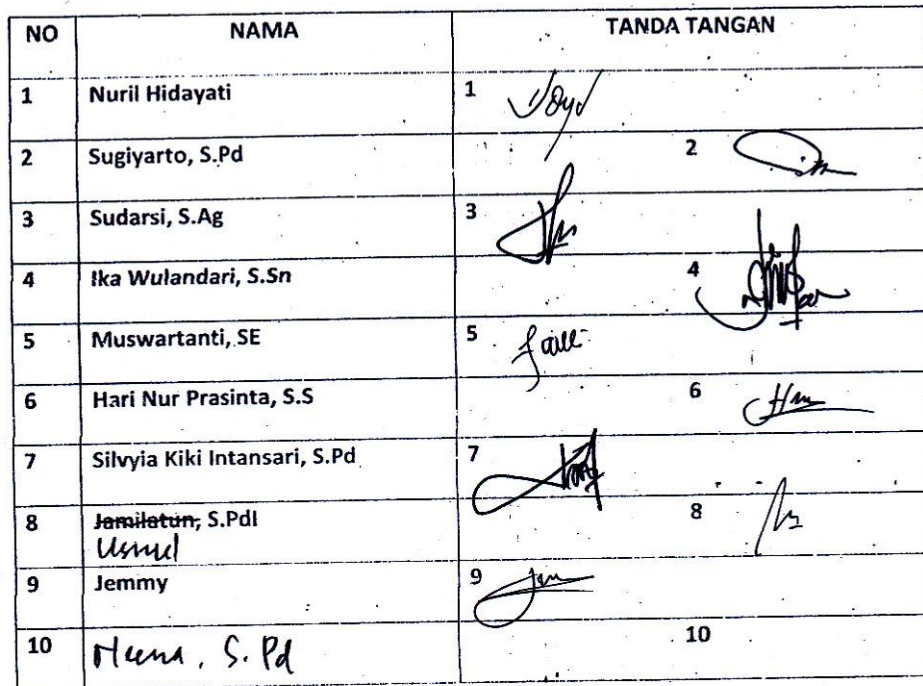 NO NAMA TANDA TANGAN
1 Nuril Hidayati 1
2 Sugiyarto, S.Pd 2
3 Sudarsi, S.Ag 3
4 Ika Wulandari, S.Sn 4
5 Muswartanti, SE 5
6 Hari Nur Prasinta, S.S 6
7 Silvyia Kiki Intansari, S.Pd 7
8 Jamilatun, S.PdI 8
9 Jemmy 9
10 S.Pd 10